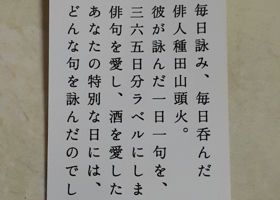 毎日詠み、毎日呑んだ
俳人種田山頭火。
彼が詠んだ一日一句を、
三六五日分ラベルにしま
俳句を愛し、酒を愛した
あなたの特別な日には、
どんな句を詠んだのでし